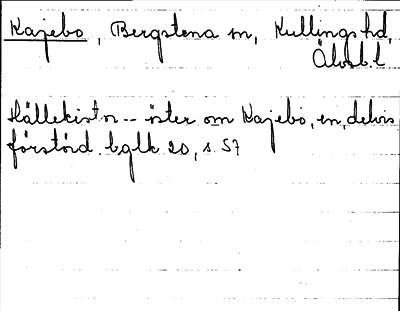 Kajebo, Bergstena sn, Kullings hd,
Älvsb. l
Hällekistor -- öster om Kajebo, en, delvis
förstörd. bglk 20, s. 57